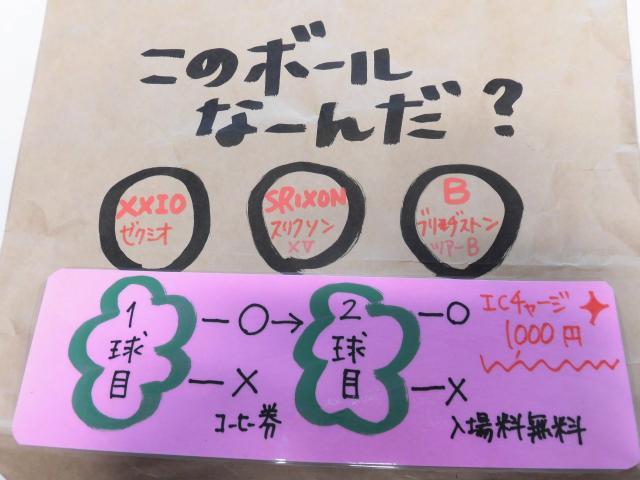 このボール
なーんだ?
XXIO
ゼクシオ
SRIXON
スリクソン
XV
B
ブリヂストン
ツアーB
1球目
ー○→
ー×
コーヒー券
2球目
ー○
ー×
ICチャージ
1000円
入場料無料